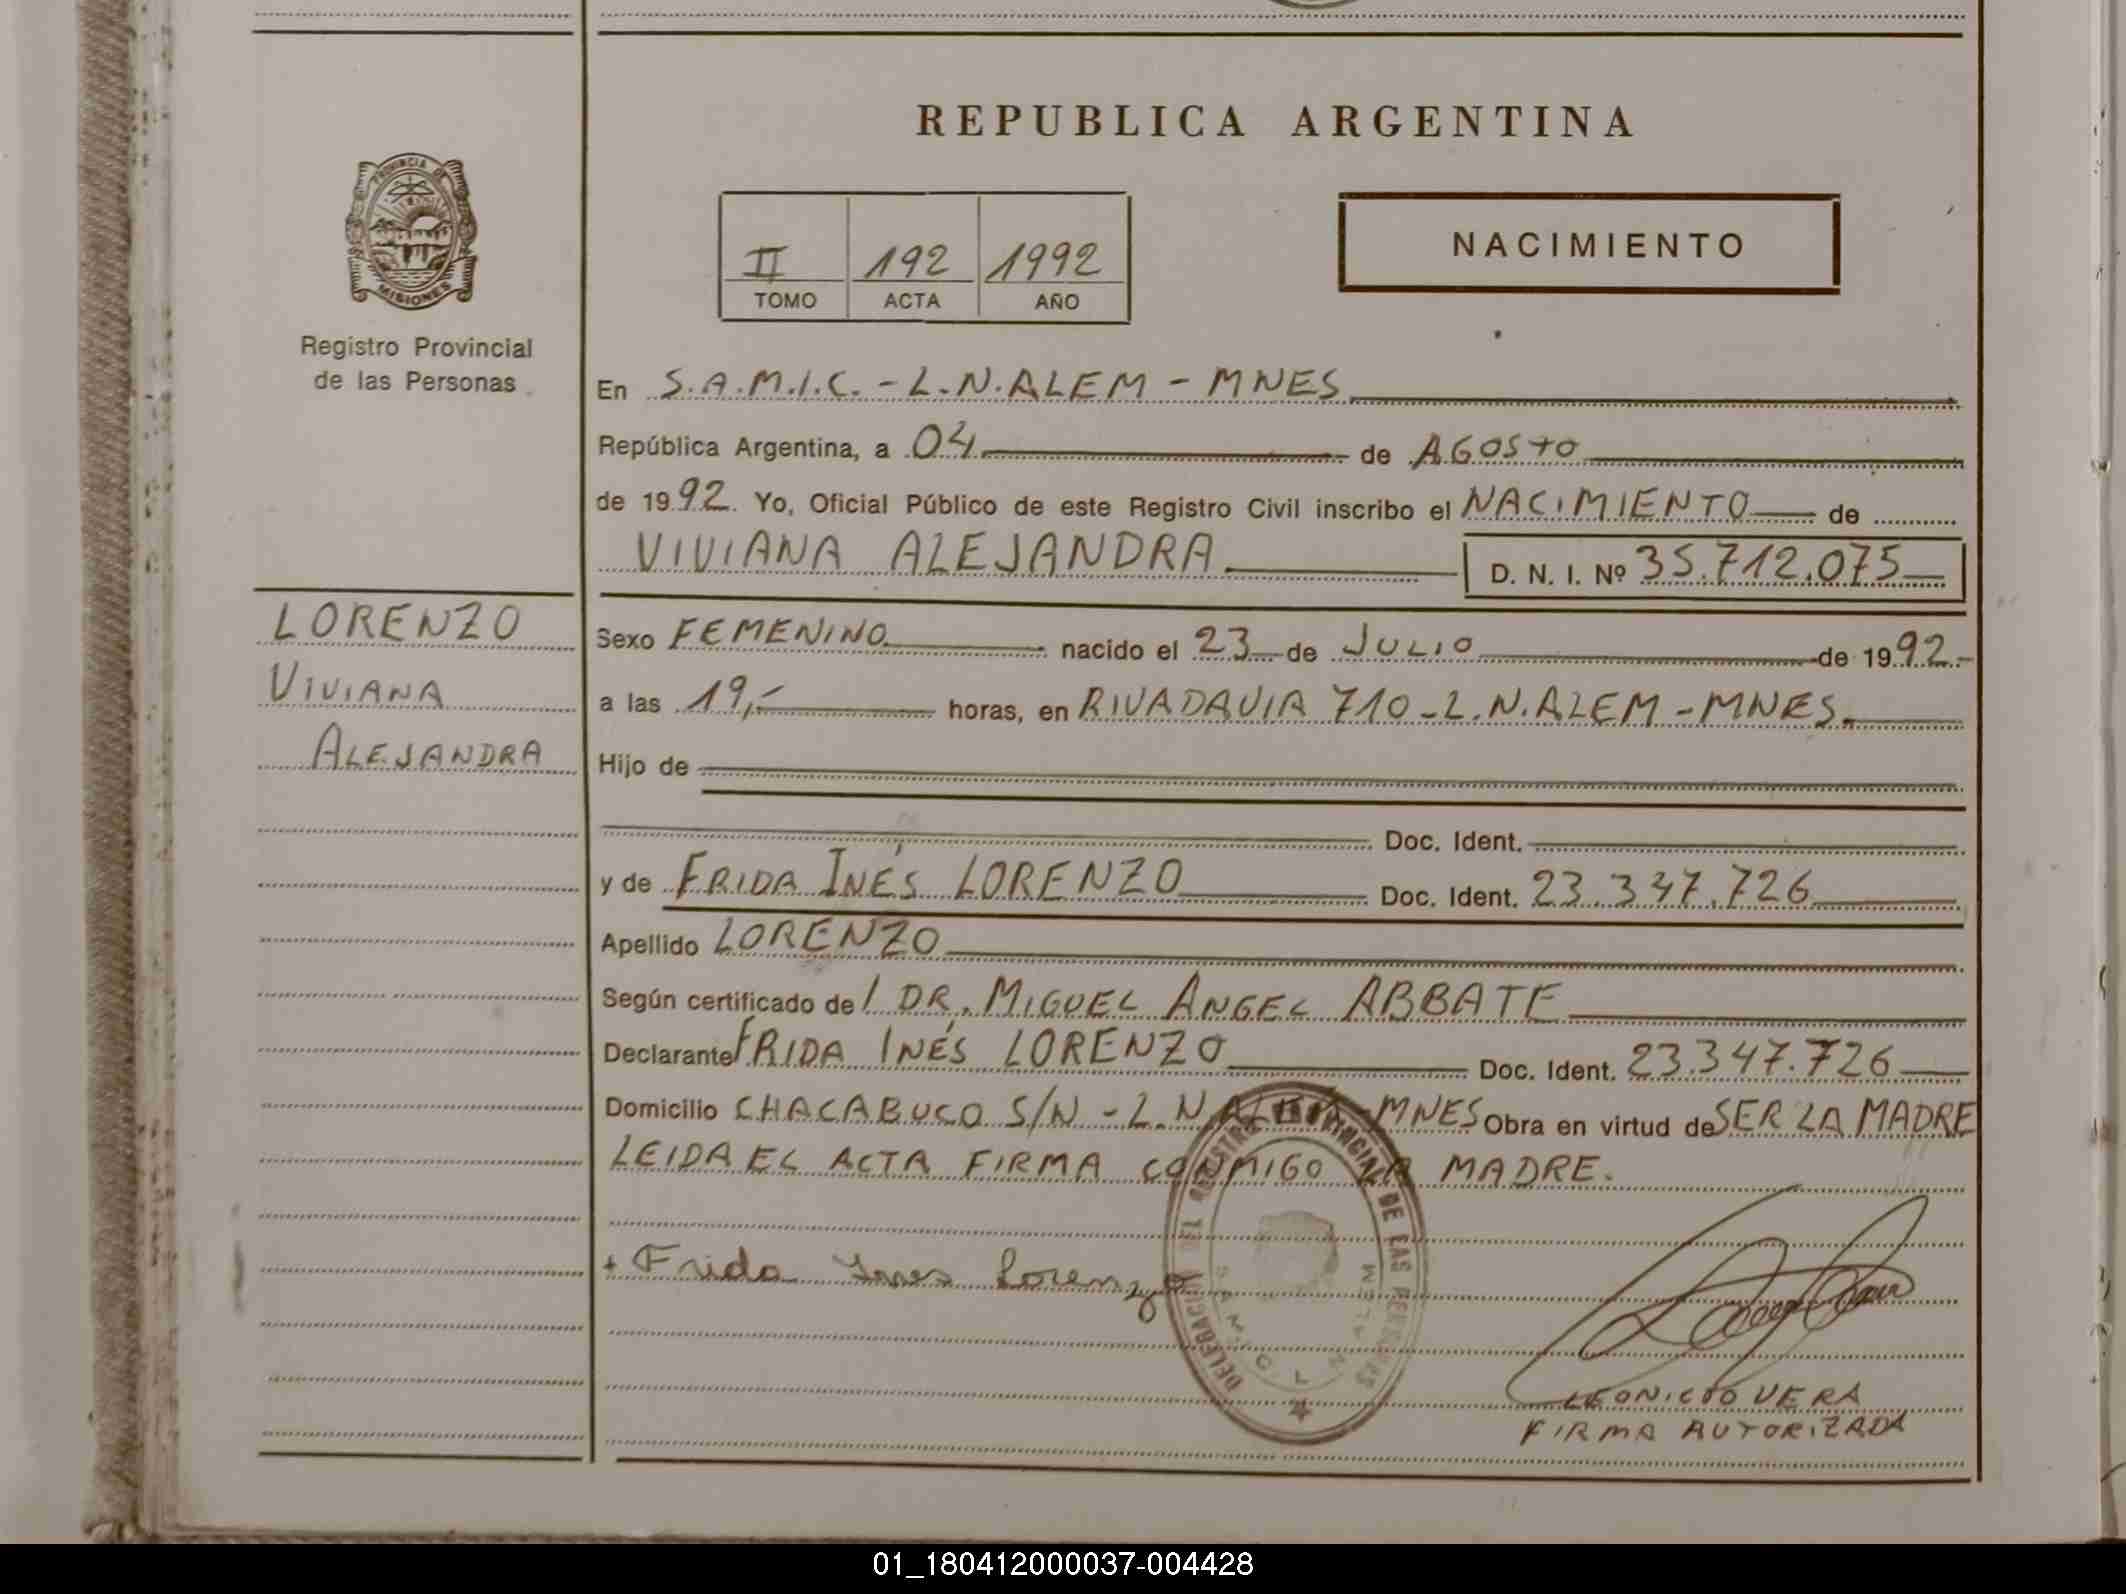 REPUBLICA ARGENTINA
PROVINCIA DE
MISIONES
Registro Provincial
de las Personas
II 192 1992
TOMO ACTA AÑO
NACIMIENTO
En S.A.M.I.C. - L.N. ALEM - MNES
República Argentina, a 04 de AGOSTO
de 1992. Yo, Oficial Público de este Registro Civil inscribo el NACIMIENTO de
VIVIANA ALEJANDRA D. N. I. Nº 35.712.075
LORENZO
VIVIANA
ALEJANDRA
Sexo FEMENINO nacido el 23 de JULIO de 1992.-
a las 19,- horas, en RIVADAVIA 710 - L.N. ALEM - MNES.
Hijo de
Doc. Ident.
y de FRIDA INÉS LORENZO Doc. Ident. 23.347.726
Apellido LORENZO
Según certificado de / DR. MIGUEL ANGEL ABBATE
Declarante FRIDA INÉS LORENZO Doc. Ident. 23.347.726
Domicilio CHACABUCO S/N - L.N. ALEM - MNES Obra en virtud de SER LA MADRE
LEIDA EL ACTA FIRMA CONMIGO LA MADRE.
+ Frida Ines Lorenzo
DELEGACION DEL REGISTRO PROVINCIAL DE LAS PERSONAS
S.A.M.I.C. L. N. ALEM
FIRMA AUTORIZADA
01_180412000037-004428